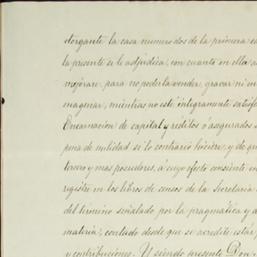 otorgante la casa numero dos de la primera
la presente se le adjudica, con cuanto en ella
mejorare, para no poderla vender, gravar ni
magenar, mientras no esté integramente satisfe
Encarnacion de capital y réditos ó asegurados
pena de nulidad si lo contrario hiciere, y de que
tercero y mas poseedores, á cuyo efecto consiente
registre en los libros de censos de la Secretaria
del término señalado por la pragmática y
materia, contado desde que se acredite estar
y contribuciones. Y siendo presente Don